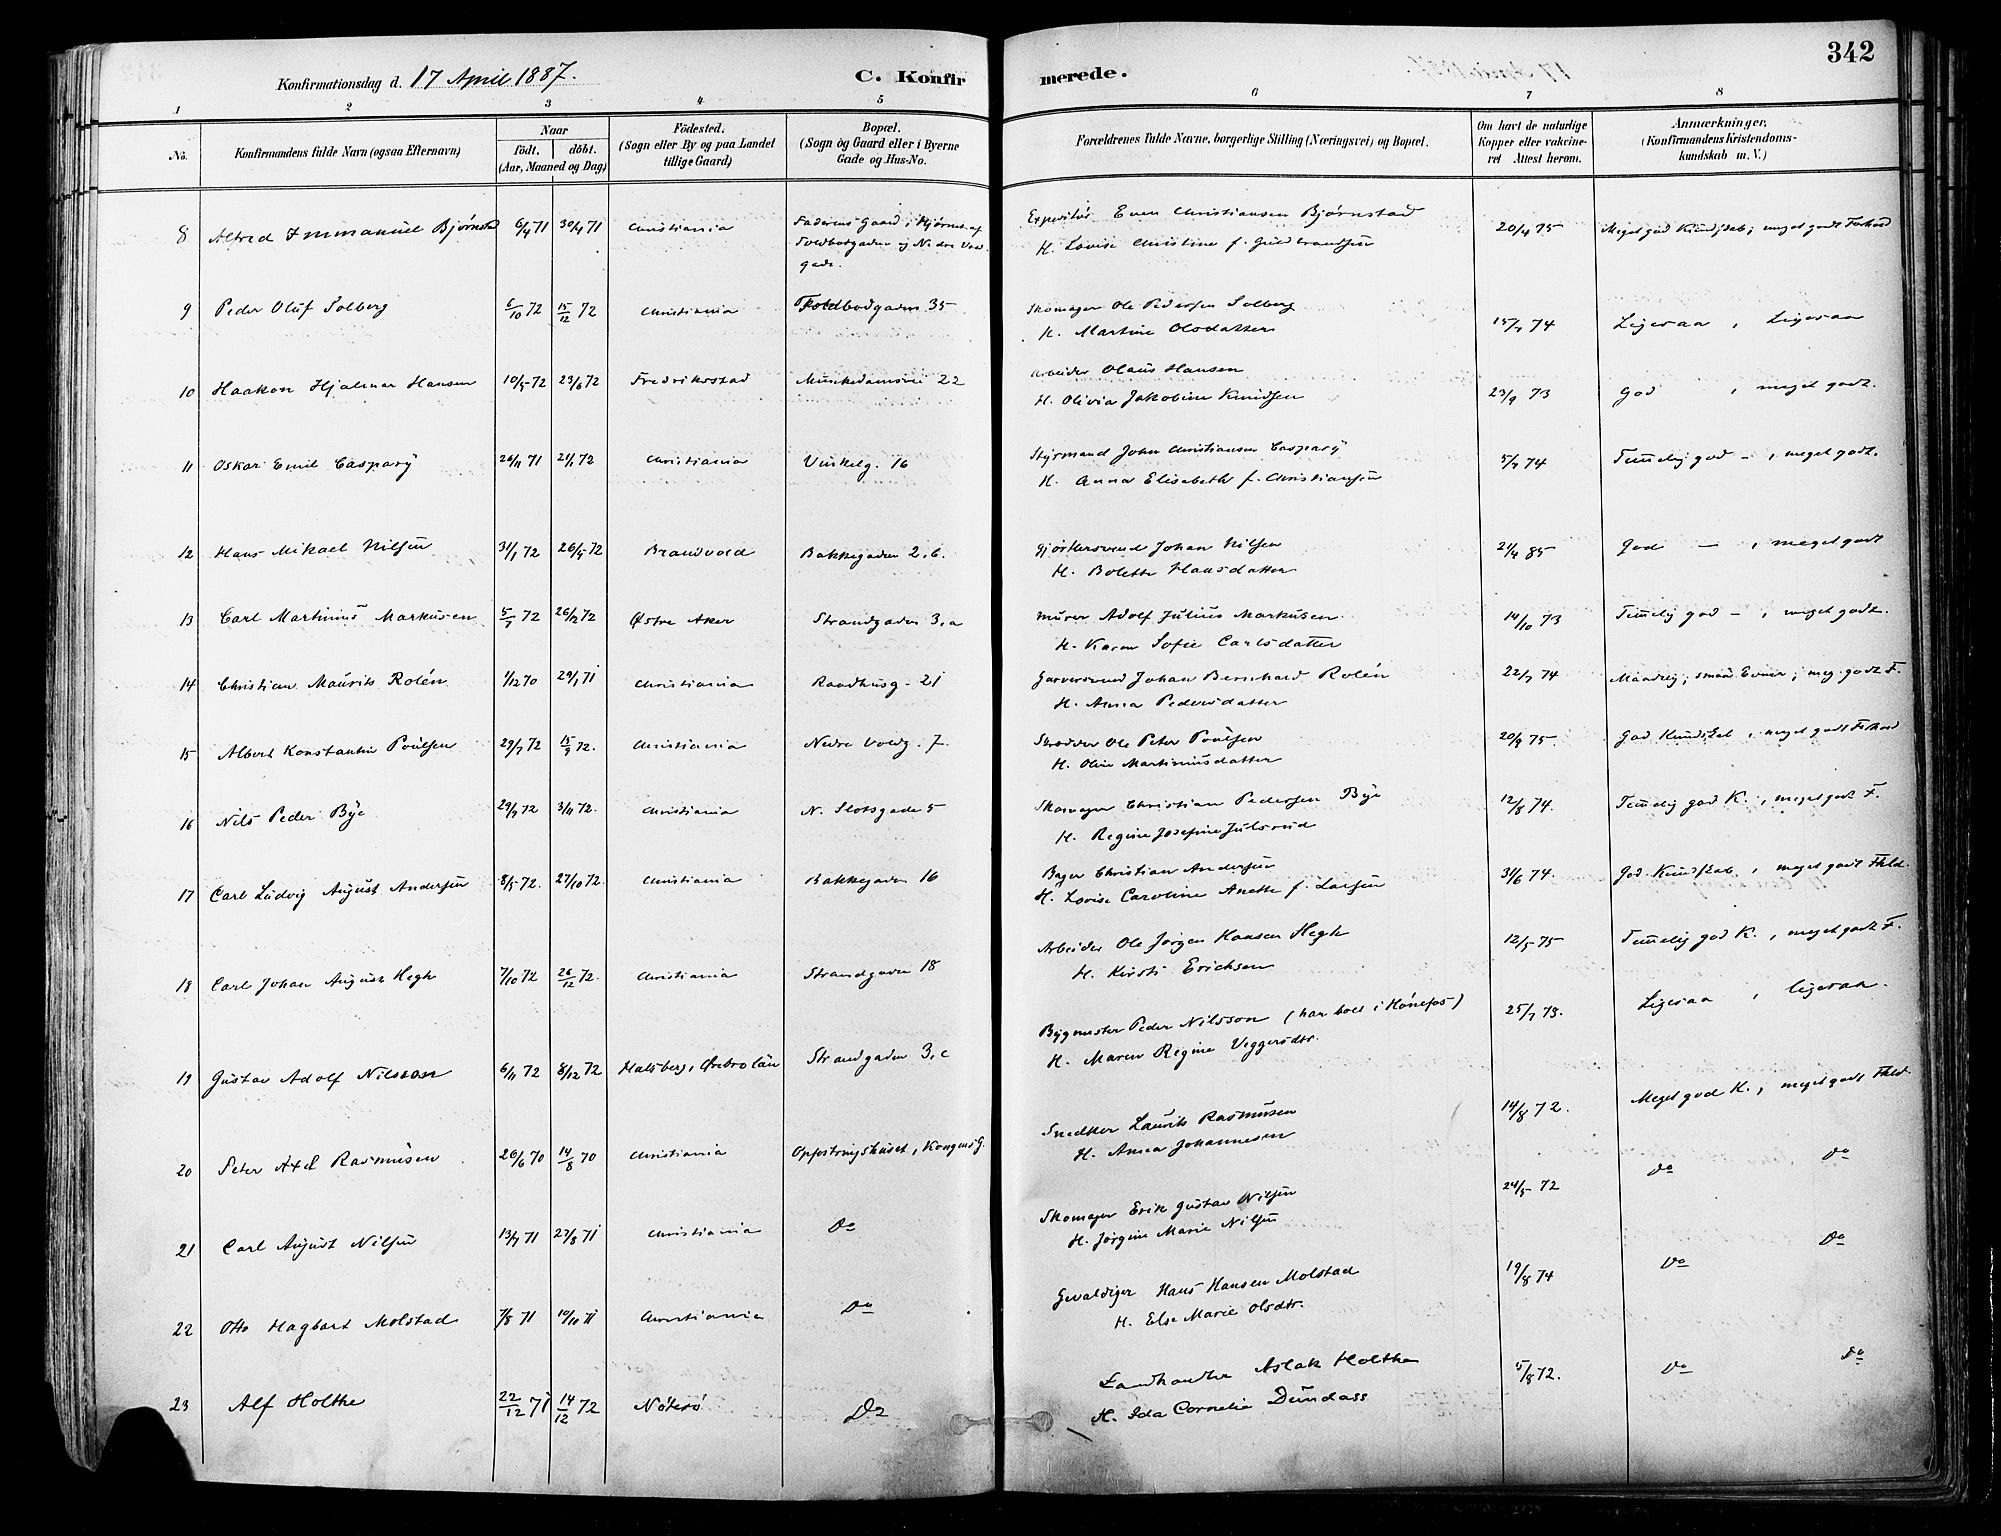 342
Konfirmationsdag d. 17 April 1887.
C. Konfirmerede.
1 2 3 4 5 6 7 8
No. Konfirmandens fulde Navn (ogsaa Efternavn) Naar födt. döbt. (Aar, Maaned og Dag) Födested. (Sogn eller By og paa Landet tillige Gaard) Bopæl. (Sogn og Gaard eller i Byerne Gade og Hus-No. Forældrenes fulde Navne, borgerlige Stilling (Næringsvei) og Bopæl. Om havt de naturlige Kopper eller vakcineret Attest herom. Anmærkninger, (Konfirmandens Kristendomskundskab m. V.)
8 Alfred Immanuel Bjørnstad 6/4 71 30/4 71 Christiania Faderens Gaard i Hjørnet af Toldbodgaden og Nedre Voldgade. Expeditør Even Christiansen Bjørnstad 20/4 75 Meget god Kundskab, meget godt Forhold
H. Lovise Christine f. Guldbrandsen
9 Peder Oluf Solberg 6/10 72 15/12 72 Christiania Toldbodgaden 35 Skomager Ole Pedersen Solberg 15/7 74 Ligesaa, Ligesaa
H. Martine Olsdatter
10 Haakon Hjalmar Hansen 10/5 72 23/6 72 Fredriksstad Munkedamsvei 22 Arbeider Olaus Hansen 23/9 73 God, meget godt.
H. Olivia Jakobine Knudsen
11 Oskar Emil Caspary 26/11 71 21/1 72 Christiania Vinkelg. 16 Styrmand John Christiansen Caspary 5/7 74 Temmelig god -, meget godt.
H. Anna Elisabeth f. Christiansen
12 Hans Mikael Nilsen 31/1 72 26/5 72 Brandvold Bakkegaden 2.b. Gjørtlersvend Johan Nilsen 21/4 85 God -, meget godt
H. Bolette Hansdatter
13 Carl Martinius Markusen 5/7 72 26/12 72 Østre Aker Strandgaden 3.a Murer Adolf Julius Markusen. 14/10 73 Temmelig god -, meget godt.
H. Karen Sofie Carlsdatter
14 Christian Maurits Rolén 1/12 70 29/1 71 Christiania Raadhusg. 21 Garversvend Johan Bernhard Rolén 22/7 74 Maadelig, smaa Evner, meg. godt F.
H. Anna Pedersdatter
15 Albert Konstantin Poulsen 29/7 72 15/9 72. Christiania Nedre Voldg. 7. Skrædder Ole Peter Poulsen 20/9 75. God Kundskab, meget godt Forhold
H. Oline Martiniusdatter
16 Nils Peder Bye 29/7 72 3/11 72. Christiania N. Slotsgade 5 Skomager Christian Pedersen Bye 12/8 74. Temmelig god K., meget godt F.
H. Regine Josefine Julsrud
17 Carl Ludvig August Andersen 8/5 72. 27/10 72. Christiania Bakkegaden 16 Bager Christian Andersen 31/6 74. God Kundskab, meget godt Fhld.
H. Lovise Caroline Anette f. Larsen
18 Carl Johan August Hegh 7/10 72 26/12 72. Christiania Strandgaden 18 Arbeider Ole Jørgen Hansen Hegh 12/5 75 Temmelig god K., meget godt F.
H. Kirsti Erichsen
19 Gustav Adolf Nilsson 6/11 72 8/12 72 Halsberg, Ørebro län Strandgaden 3,c Bygmester Peder Nilsson (har boet i Hønefos) 25/7 73. Ligesaa, ligesaa.
H. Maren Regine Veggersdtr.
20 Peter Axel Rasmusen 26/6 70 14/8 70 Christiania Opfostringshuset, Kongens G. Snedker Laurits Rasmusen 14/8 72. Meget god K., meget godt Fhld.
H. Anna Johannesen
21 Carl August Nilsen 13/7 71 27/8 71 Christiania Do Skomager Erik Gustav Nilsen 24/5 72 Do Do
H. Jørgine Marie Nilsen
22 Otto Hagbart Molstad 7/8 71 10/10 71 Christiania Do Gevaldiger Hans Hansen Molstad 19/8 74 Do Do
H. Else Marie Olsdtr.
23 Alf Holthe 22/12 71 14/12 72 Nøterø Do Landhandler Aslak Holthe 5/8 72. Do Do
H. Ida Cornelia Dundass